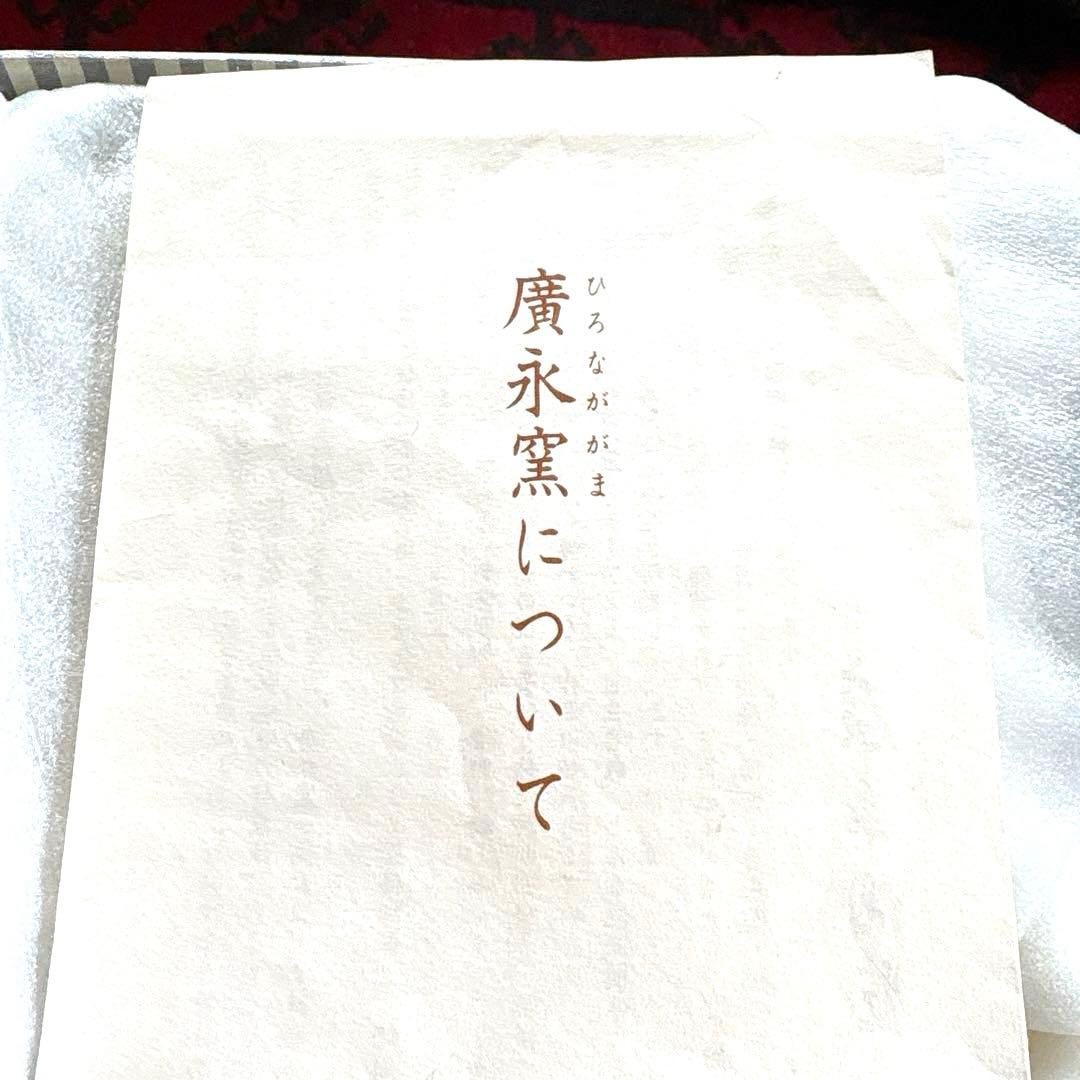 廣永窯について
ひろながが​ま